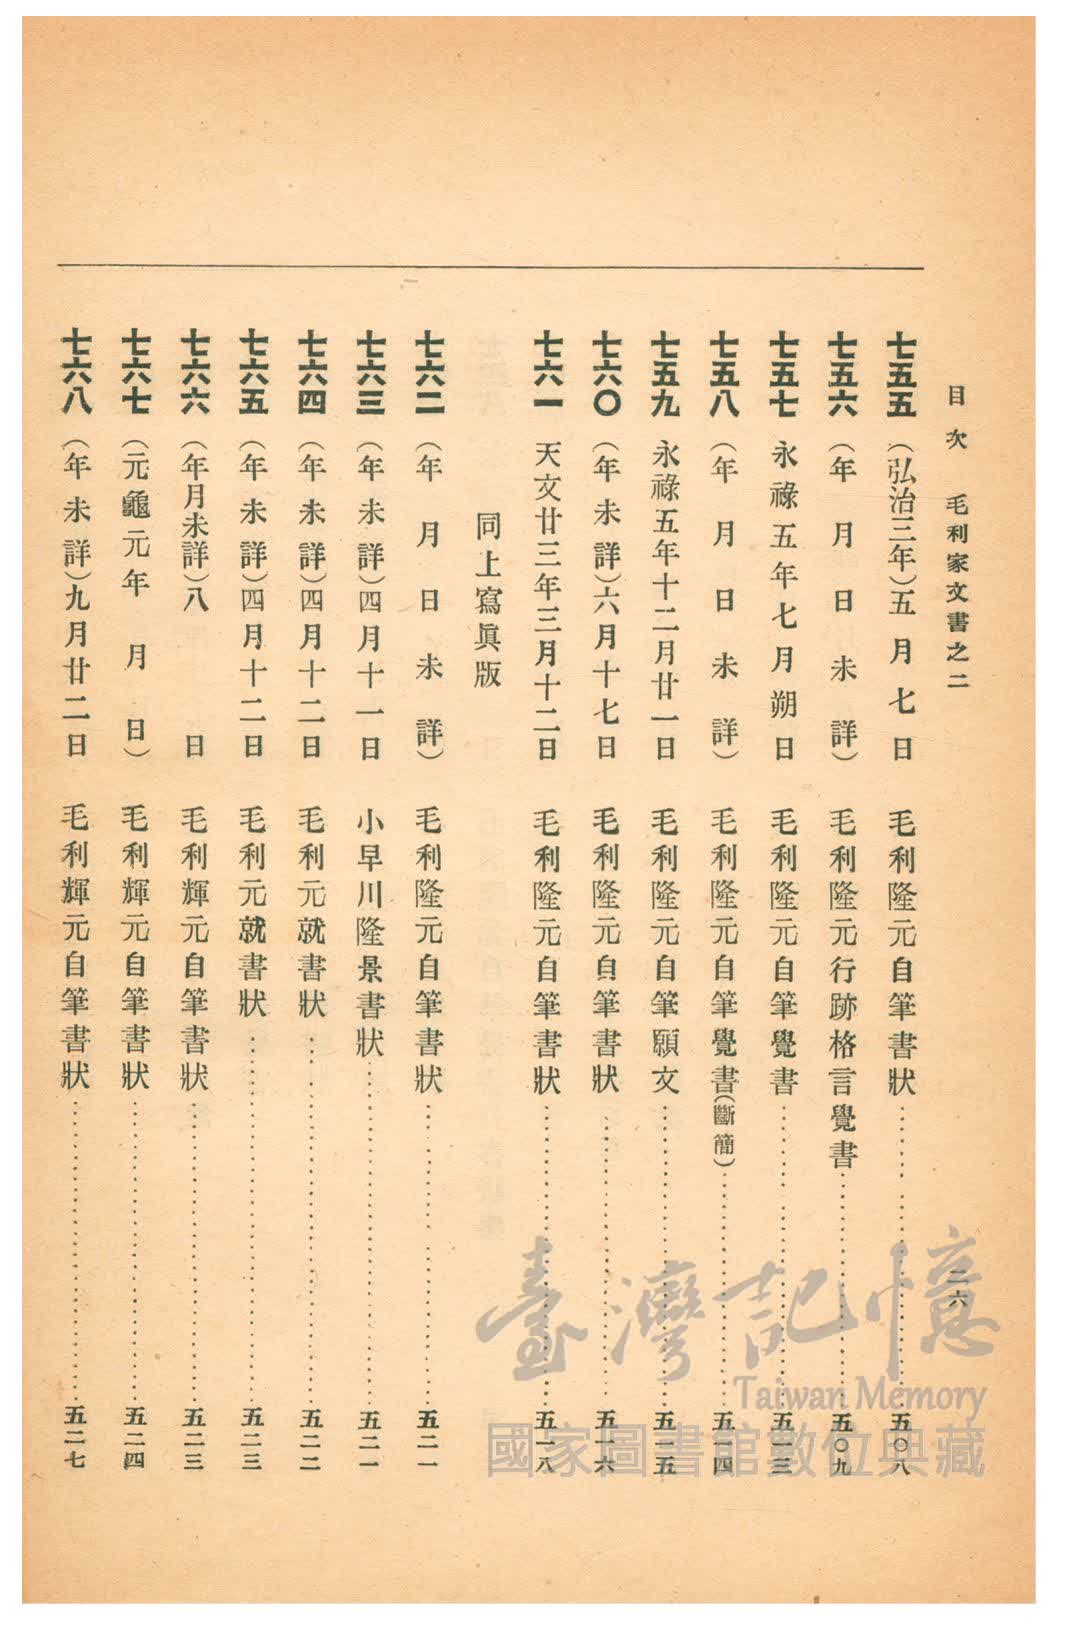 目次 毛利家文書之二 二六
七五五 (弘治三年)五月七日 毛利隆元自筆書狀 五〇八
七五六 (年月日未詳) 毛利隆元行跡格言覺書 五〇九
七五七 永祿五年七月朔日 毛利隆元自筆覺書 五一三
七五八 (年月日未詳) 毛利隆元自筆覺書(斷簡) 五一四
七五九 永祿五年十二月廿一日 毛利隆元自筆願文 五一五
七六〇 (年未詳)六月十七日 毛利隆元自筆書狀 五一六
七六一 天文廿三年三月十二日 毛利隆元自筆書狀 五一八
同上寫眞版
七六二 (年月日未詳) 毛利隆元自筆書狀 五二一
七六三 (年未詳)四月十一日 小早川隆景書狀 五二一
七六四 (年未詳)四月十二日 毛利元就書狀 五二二
七六五 (年未詳)四月十二日 毛利元就書狀 五二三
七六六 (年月未詳)八日 毛利輝元自筆書狀 五二三
七六七 (元龜元年月日) 毛利輝元自筆書狀 五二四
七六八 (年未詳)九月廿二日 毛利輝元自筆書狀 五二七
臺灣記憶
Taiwan Memory
國家圖書館數位典藏